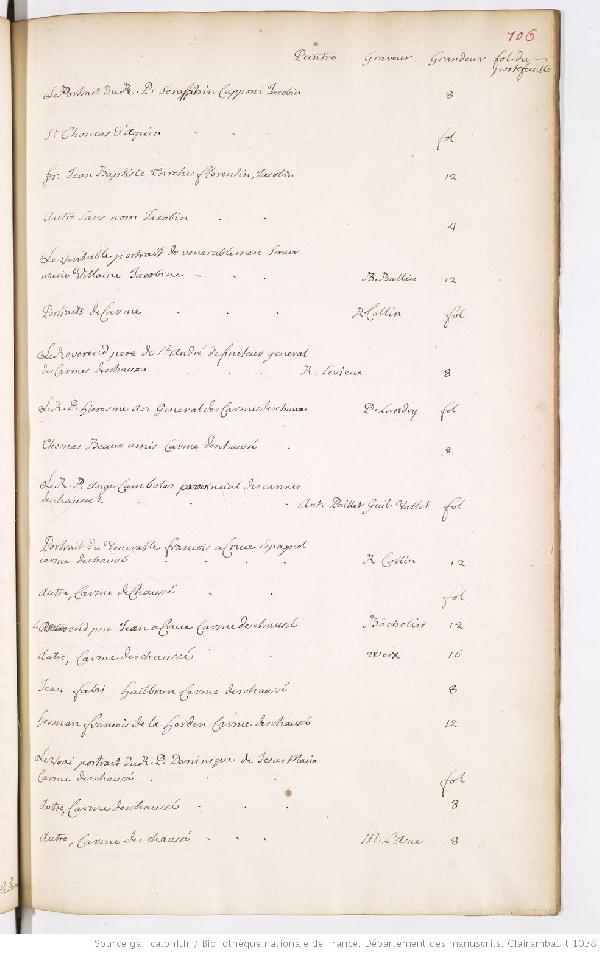 106
Peintre Graveur Grandeur fol. du
portefeuille
Le Portrait du R. P. Seraphin Capponi Jacobin 8
St Thomas d'Aquin fol
fr. Jean Baptiste florentin, Jacobin 12
Autre sans nom Jacobin 4
Le veritable portrait de venerable mere Soeur
marie Villaine Jacobine B. 12
Portraits de Carme R Collin fol
Le Reverend pere de St André definiteur general
des Carmes deschaux R. Levieux 8
Le R. P. hierosme Ari General des Carmes deschaux P. Landry fol
Thomas Beaux amis Carme deschaussé 8
Le R. P. Ange Cambolas provincial des carmes
deschaussé Ant. Paillet Guil. Vallet fol
Portrait du Venerable françois a Cruce Espagnol
carme dechaussé R Collin 12
Autre, Carme dechaussé fol
Reverend pere Jean a Cruce Carme deschaussé Bachelier 12
Autre, Carme deschaussé Wierx 16
Jean fabri Heilbrun Carme deschaussé 8
herman françois de la Carme deschaussé 12
Le Vrai portrait du R. P. Dominique de Jesus Maria
Carme deschaussé fol
Autre, Carme deschaussé 8
Autre, Carme deschaussé M. L'Asne 8
Source gallica.bnf.fr / Bibliothèque nationale de France. Département des manuscrits. Clairambault 1038